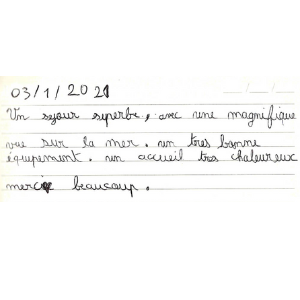 03/1/2021
Un sejour superbe, avec une magnifique
vue sur la mer. un tres bonne
équipement. un accueil tres chaleureux
merci beaucoup.